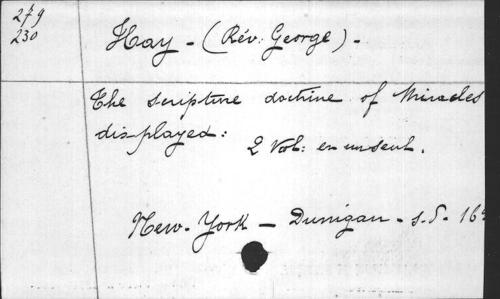 279
230
Hay - (Rév. George) -
The scripture doctrine of Miracles
displayed:
2 Vol: en un seul.
New-York - Dunigan - s.d. - 16º